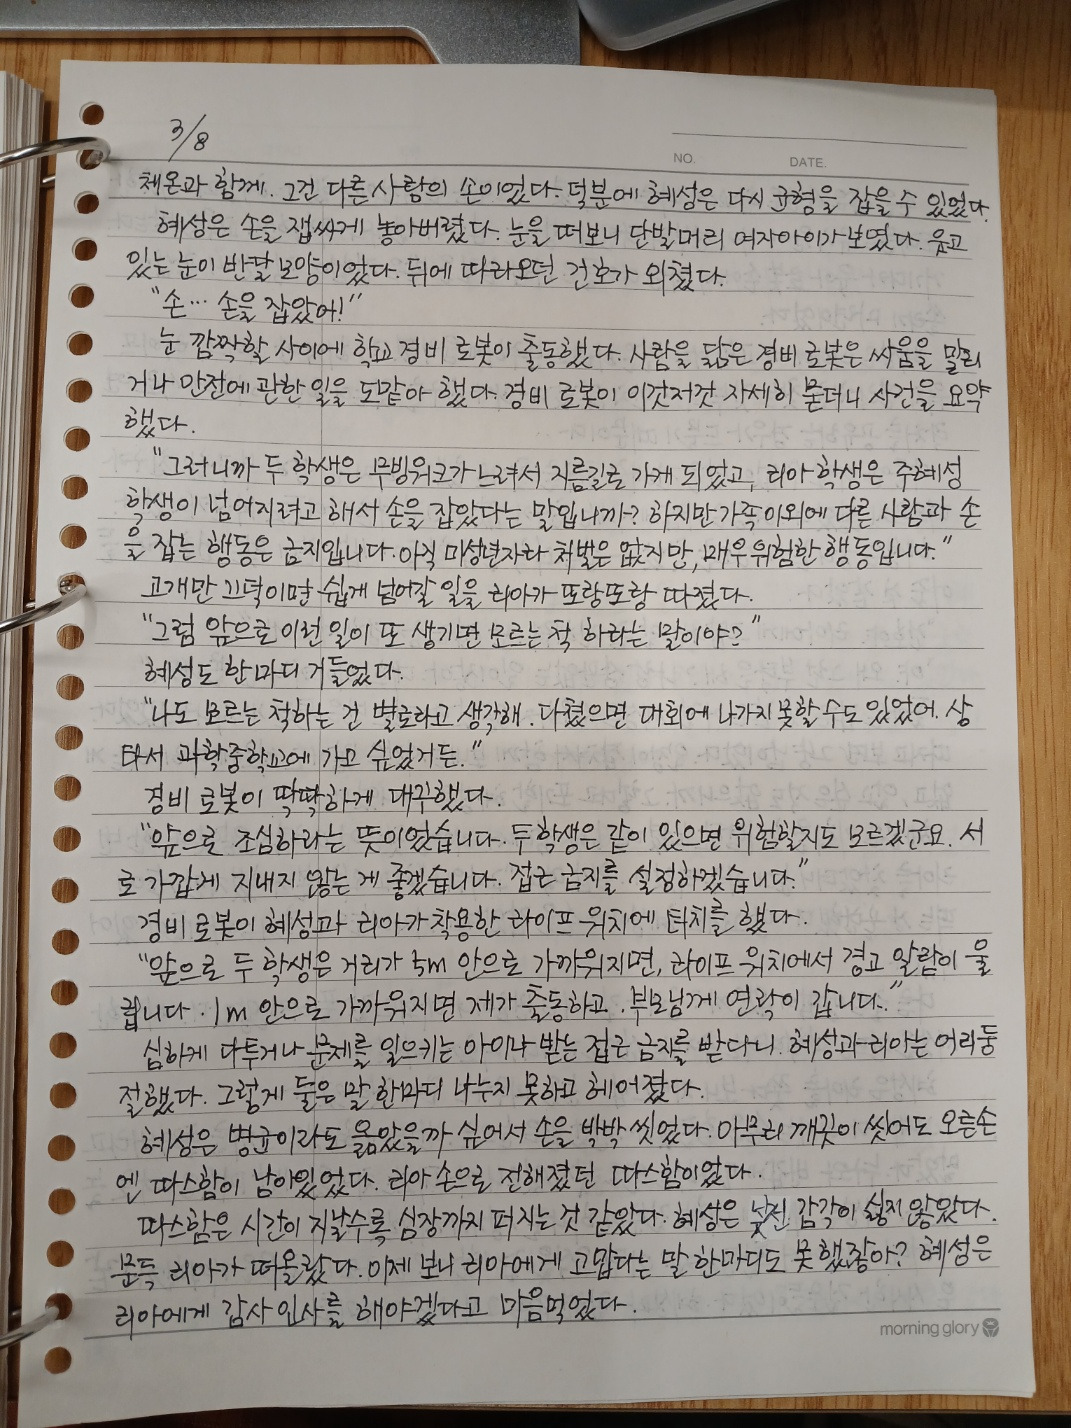 3/8
NO. DATE.
체온과 함께. 그건 다른 사람의 손이었다. 덕분에 혜성은 다시 균형을 잡을 수 있었다.
혜성은 손을 잽싸게 놓아버렸다. 눈을 떠보니 단발머리 여자아이가 보였다. 웃고
있는 눈이 반달 모양이었다. 뒤에 따라오던 건호가 외쳤다.
"손… 손을 잡았어!"
눈 깜짝할 사이에 학교 경비 로봇이 출동했다. 사람을 닮은 경비 로봇은 싸움을 말리
거나 안전에 관한 일을 도맡아 했다. 경비 로봇이 이것저것 자세히 묻더니 사건을 요약
했다.
"그러니까 두 학생은 무빙워크가 느려서 지름길로 가게 되었고, 리아 학생은 주혜성
학생이 넘어지려고 해서 손을 잡았다는 말입니까? 하지만 가족 이외에 다른 사람과 손
을 잡는 행동은 금지입니다. 아직 미성년자라 처벌은 없지만, 매우 위험한 행동입니다."
고개만 끄덕이면 쉽게 넘어갈 일을 리아가 또랑또랑 따졌다.
"그럼 앞으로 이런 일이 또 생기면 모르는 척 하라는 말이야?"
혜성도 한마디 거들었다.
"나도 모르는 척하는 건 별로라고 생각해. 다쳤으면 대회에 나가지 못할 수도 있었어. 상
타서 과학중학교에 가고 싶었거든."
경비 로봇이 딱딱하게 대꾸했다.
"앞으로 조심하라는 뜻이었습니다. 두 학생은 같이 있으면 위험할지도 모르겠군요. 서
로 가깝게 지내지 않는 게 좋겠습니다. 접근 금지를 설정하겠습니다."
경비 로봇이 혜성과 리아가 착용한 라이프 워치에 터치를 했다.
"앞으로 두 학생은 거리가 5m 안으로 가까워지면, 라이프 워치에서 경고 알람이 울
립니다. 1m 안으로 가까워지면 제가 출동하고. 부모님께 연락이 갑니다."
심하게 다투거나 문제를 일으키는 아이나 받는 접근 금지를 받다니. 혜성과 리아는 어리둥
절했다. 그렇게 둘은 말 한마디 나누지 못하고 헤어졌다.
혜성은 병균이라도 옮았을까 싶어서 손을 박박 씻었다. 아무리 깨끗이 씻어도 오른손
엔 따스함이 남아있었다. 리아 손으로 전해졌던 따스함이었다.
따스함은 시간이 지날수록 심장까지 퍼지는 것 같았다. 혜성은 낯선 감각이 싫지 않았다.
문득 리아가 떠올랐다. 이제 보니 리아에게 고맙다는 말 한마디도 못 했잖아? 혜성은
리아에게 감사 인사를 해야겠다고 마음먹었다.
morning glory